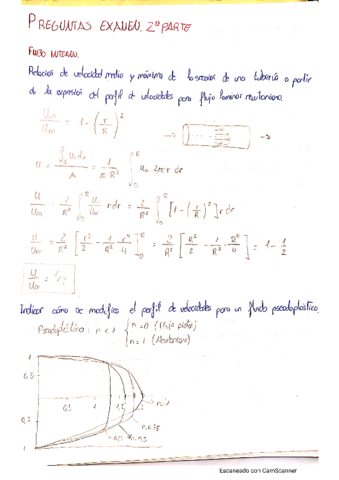 PREGUNTAS EXAMEN. 2ª PARTE
FLUJO INTERNO.
Relación de velocidad media y máxima de la sección de una tubería a partir
de la expresión del perfil de velocidades para flujo laminar newtoniano.
Ux/Um = 1 - (r/R)²
U = ∫ Ux dA / A = 1/(π R²) ∫₀ᴿ Ux 2πr dr
U/Um = 2/R² ∫₀ᴿ Ux/Um r dr = 2/R² ∫₀ᴿ [1 - (r/R)²] r dr
U/Um = 2/R² [r²/2 - 1/R² r⁴/4]₀ᴿ = 2/R² [R²/2 - 1/R² R⁴/4] = 1 - 1/2
U/Um = 1/2
Indicar cómo se modifica el perfil de velocidades para un fluido pseudoplástico.
Pseudoplástico: n < 1 { n = 0 (flujo pistón)
n = 1 (Newtoniano)
1
0,5
0,5 1 1,5 2
n=1
0,5
n=0,75
n=0,5
1
Escaneado con CamScanner